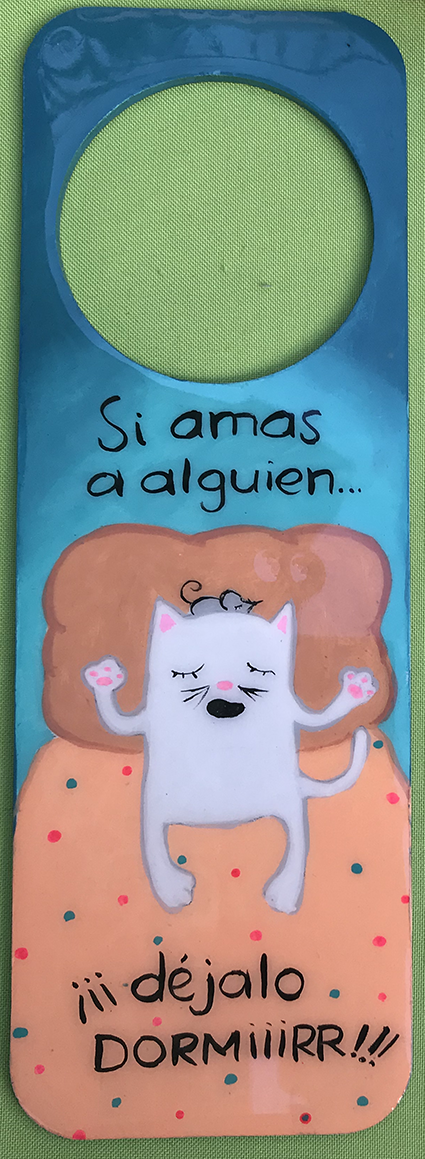 Si amas
a alguien...
¡¡¡ déjalo
DORMiiiRR!!!